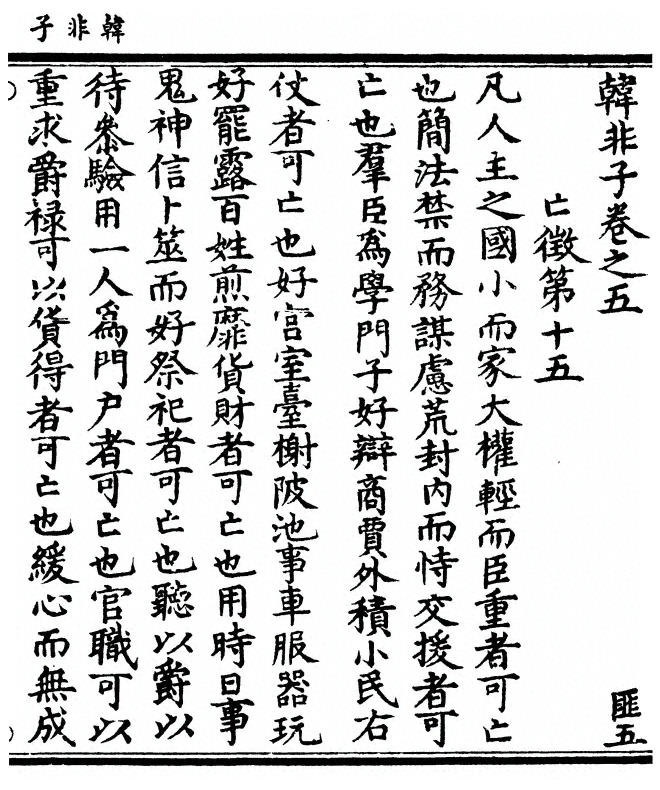 韓非子
韓非子卷之五
匪五
亡徵第十五
凡人主之國小而家大權輕而臣重者可亡
也簡法禁而務謀慮荒封內而恃交援者可
亡也羣臣爲學門子好辯商賈外積小民右
仗者可亡也好宮室臺榭陂池事車服器玩
好罷露百姓煎靡貨財者可亡也用時日事
鬼神信卜筮而好祭祀者可亡也聽以爵以
待參驗用一人爲門户者可亡也官職可以
重求爵禄可以貨得者可亡也緩心而無成